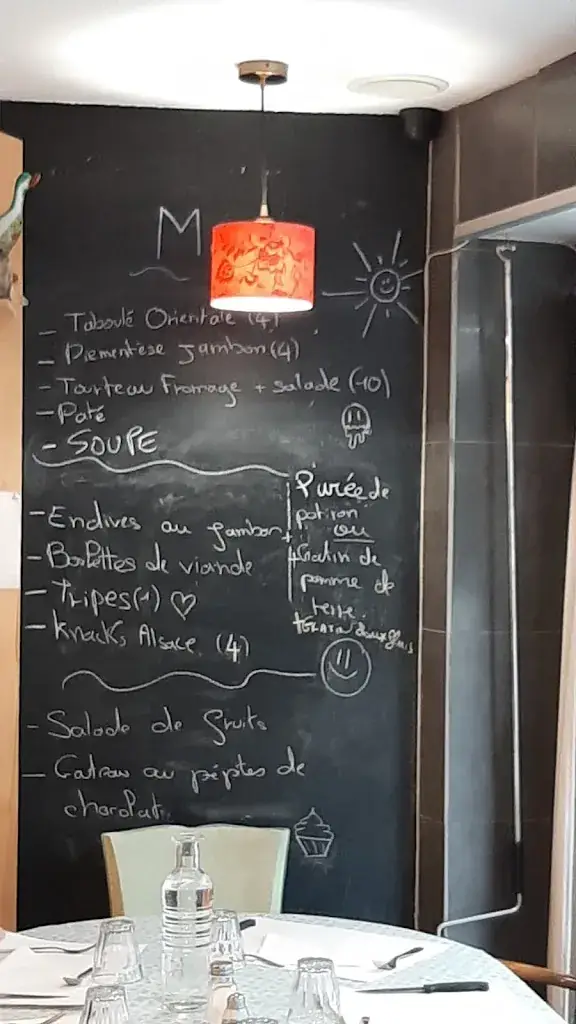 M
- Taboulé Orientale (4)
- Piemontèse Jambon (4)
- Tourteau Fromage + salade (10)
- Paté
- SOUPE
- Endives au jambon
- Boulettes de viande
- Tripes (1) ♡
- Knacks Alsace (4)
+ Purée de
potiron
ou
+ Gratin de
pomme de
terre
- Salade de fruits
- Gateau au pépites de
chocolat